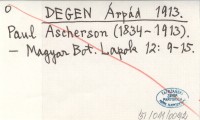 DEGEN Árpád 1913.
Paul Ascherson (1834-1913).
— Magyar Bot. Lapok 12: 9-15.